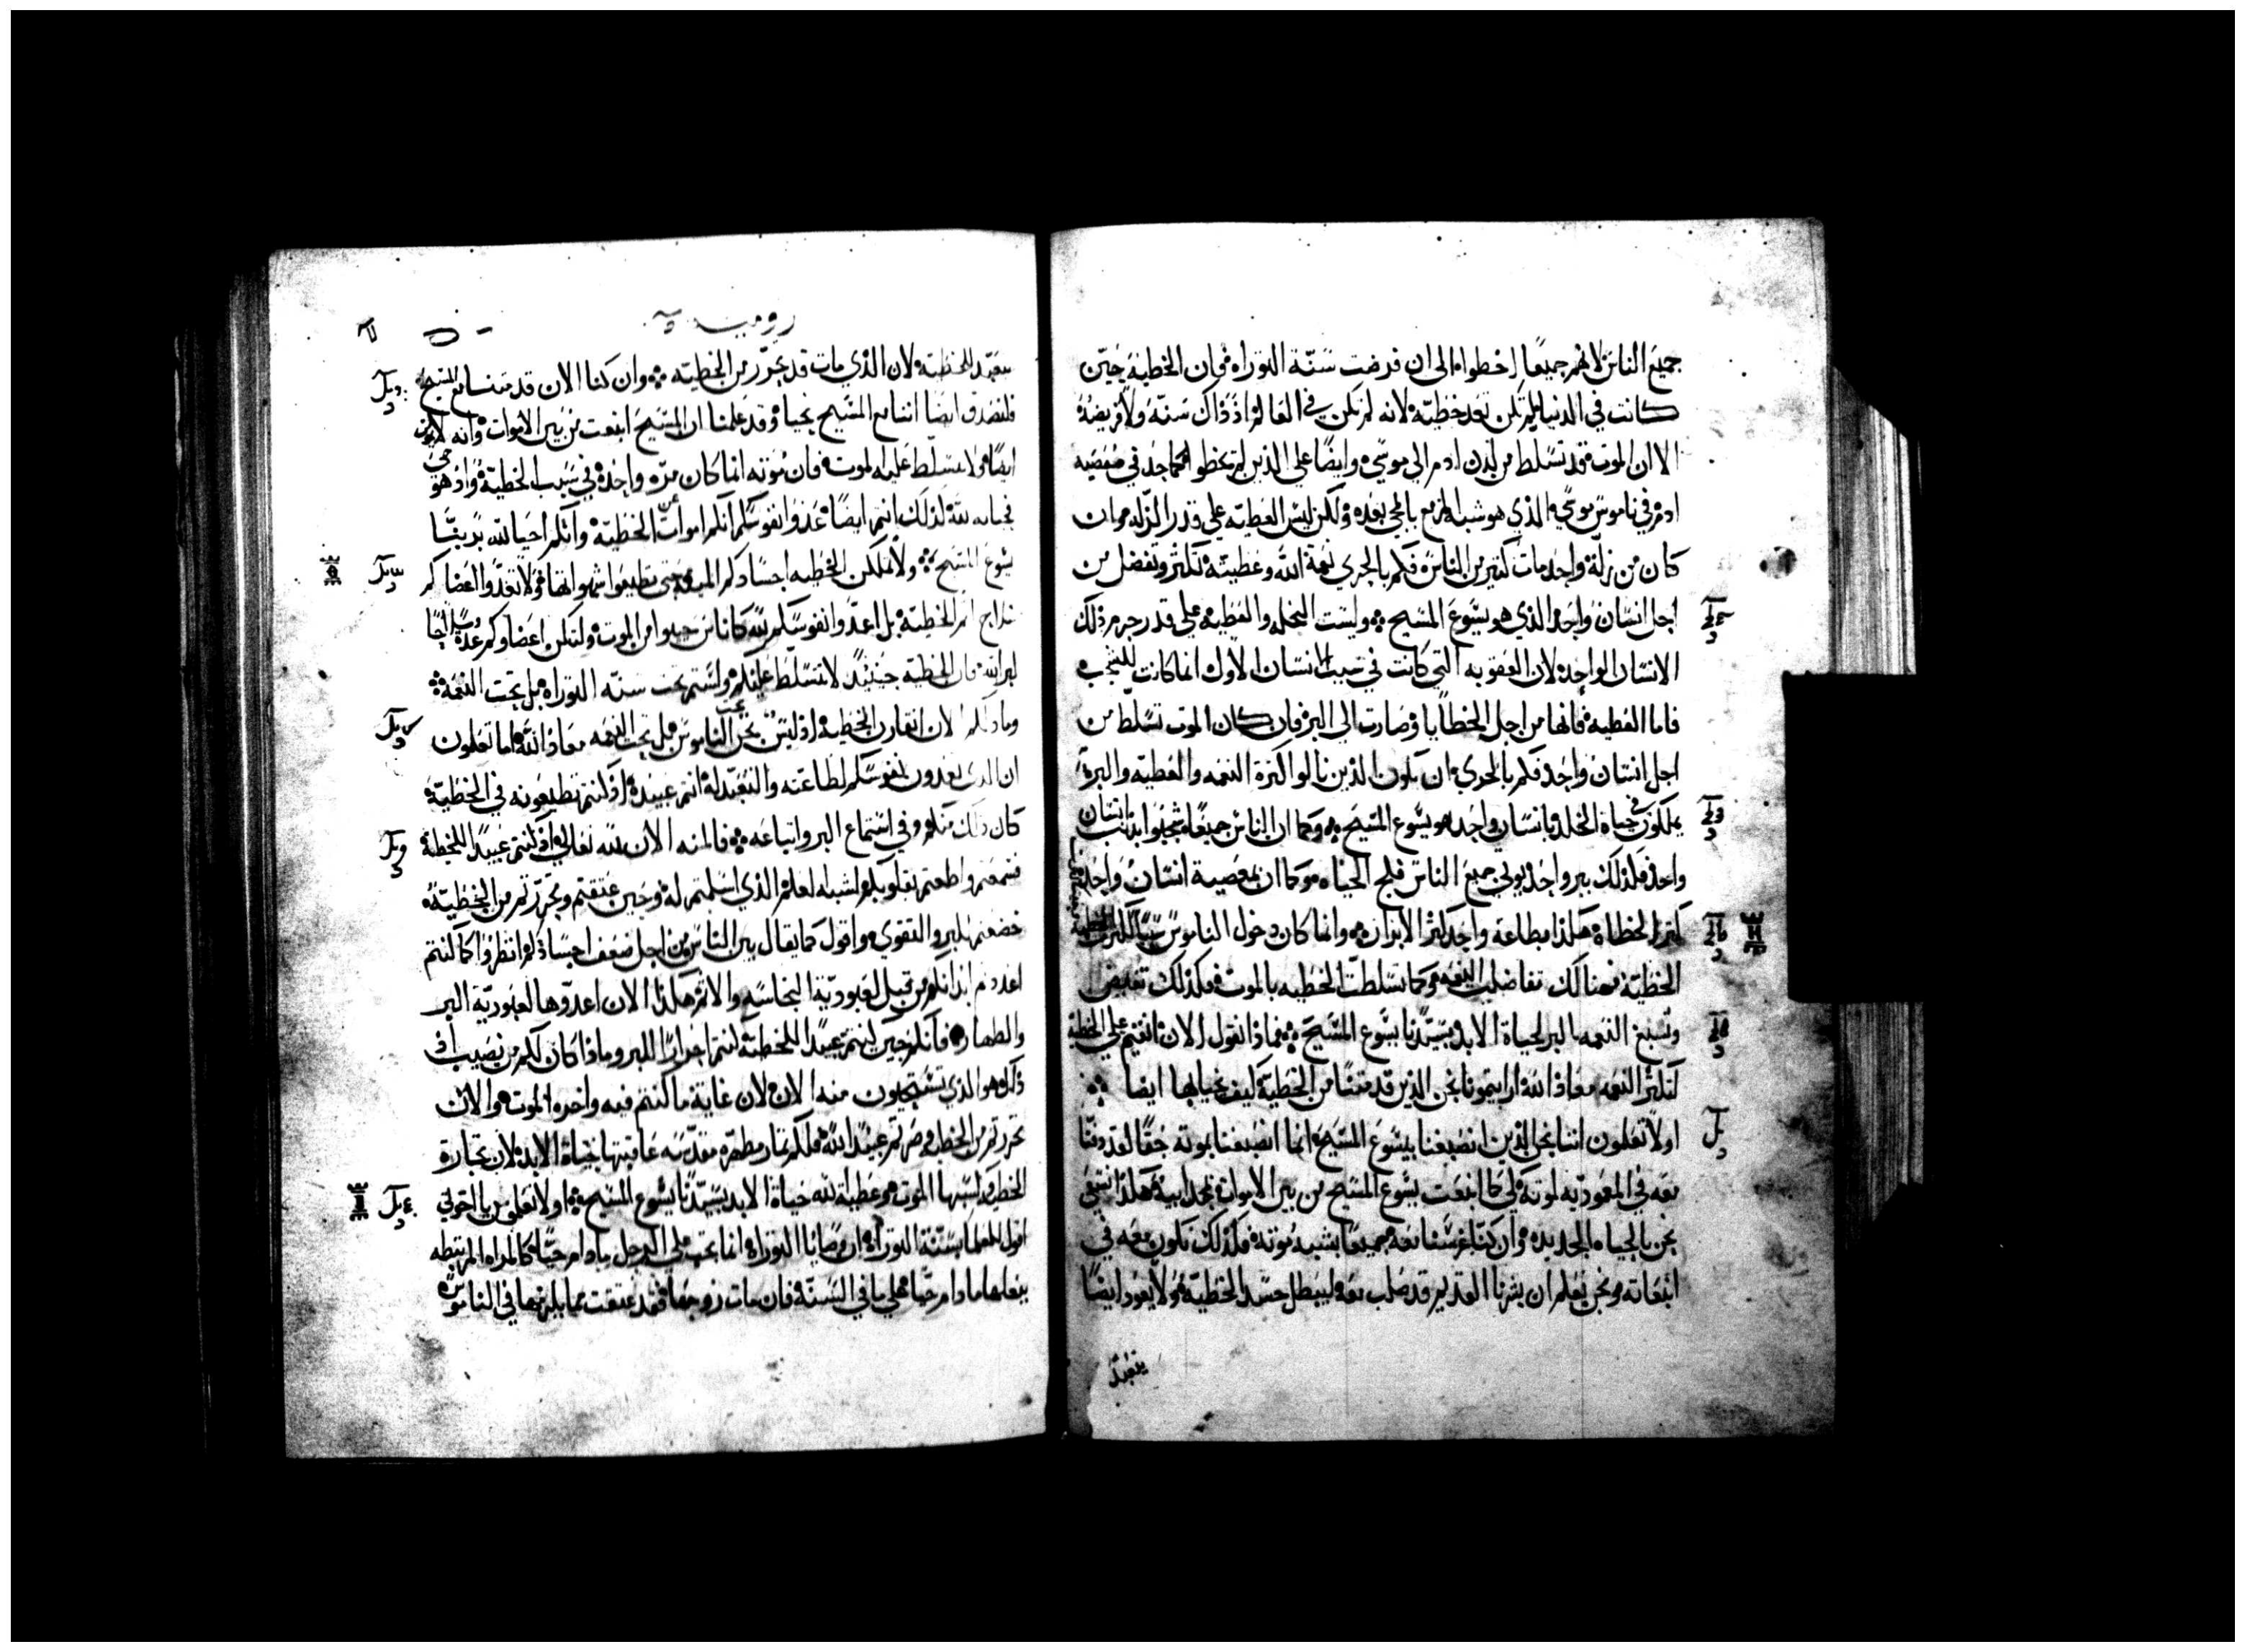 جميع الناس لانهم جميعًا اخطوا الى ان فرضت سنّة التوراه فان الخطية حين
كانت في الدنيا لم تكن تعد خطيّه لانه لم تكن في العالم اذ ذاك سنّه ولا فريضه
الا ان الموت قد تسلط من لدن ادم الى موسي وايضًا علي الذين لم يخطوا كما جد في معصيه
ادم في ناموس موسي الذي هو شبه المزمع بالمجي بعده ولكن ليس العطيه علي قدر الزله وان
كان من زلّة واحد مات كثير من الناس فكم بالحري نعمة الله وعطيته تكثر وتفضل من
اجل انسان واحد الذي هو يسوع المسيح وليست النحله والعطيه علي قدر جرم ذلك
الانسان الواحد لان العقوبه التي كانت في سبب الانسان الاول انما كانت
فاما العطيه فانها من اجل الخطايا وصارت الى البر فان كان الموت تسلّط من
اجل انسان واحد فكم بالحري ان يكون الذين نالوا كثرة النعمه والعطيه والبر
يملكون في حياة الخلد بانسان واحد هو يسوع المسيح وكما ان الناس جميعًا شجبوا بذنب انسان
واحد فكذلك ببر واحد يولي جميع الناس فلج الحياه وكما ان بمعصية انسان واحد
كثر الخطاه هكذا بطاعة واحد كثر الابرار وانما كان دخول الناموس سببًا لكثرة
الخطيّه فهنالك تفاضلت النعمه وكما تسلطت الخطيه بالموت فكذلك تفيض
وتسبغ النعمه بالبر لحياة الابد بسيّدنا يسوع المسيح فماذا نقول الان انقيم علي الخطية
لتكثر النعمه معاذ الله ارايتمونا نحن الذين قد متنا من الخطيّة كيف نحيا بها ايضا
اولا تعلمون اننا نحن الذين انصبغنا بيسوع المسيح انما انصبغنا بموته حقًا لقد دفنّا
معه في المعموديه لموته لكي كما انبعث يسوع المسيح من بين الاموات بمجد ابيه هكذا نسعي
نحن بالحياه الجديده وان كنّا غرسنا معه جميعًا بشبه موته فكذلك نكون معه في
انبعاثه ونحن نعلم ان بشرنا القديم قد صلب معه ليبطل جسد الخطيّة ولا يعود ايضًا
يتعبّد
روميه
يتعبّد للخطيّة لان الذي مات قد تحرّر من الخطيّه وان كنا الان قد متنا مع المسيح
فلنصدق ايضا اننا مع المسيح نحيا وقد علمنا ان المسيح انبعث من بين الاموات وانه لا يموت
ايضًا ولا يتسلّط عليه الموت فان موته انما كان مرّه واحده في سبب الخطيّة واذ هو حي
فحياته لله لذلك انتم ايضًا عدوا نفوسكم انكم اموات عن الخطيّه وانكم احيا لله بربنا
يسوع المسيح ولا تملكن الخطيه اجسادكم الميته حتي تطيعوا شهواتها ولا تعدّوا اعضاكم
سلاح اثم الخطيّه بل اعدّوا نفوسكم لله كاناس حيوا من الموت ولتكن اعضاوكم عدة سلاحًا
لبر الله فان الخطيه حينئذ لا تتسلّط عليكم ولستم تحت سنّه التوراه بل تحت النعمه
الان انقارن الخطيه اذ ليس نحن تحت الناموس بل تحت النعمه معاذ الله اما تعلمون
ان الذي تعدون نفوسكم لطاعته والتعبّد له انتم عبيده اذ كنتم تطيعونه في الخطيّة
كان ذلك منكم وفي استماع البر واتباعه فالمنه الان لله تعالي اذ كنتم عبيدًا للخطية
فسمعتم واطعتم بقلوبكم لشبه العلم الذي اسلمتم له وحين عتقتم وتحرّرتم من الخطيّة
خضعتم للبر والتقوي واقول كما يقال بين الناس من اجل ضعف اجسادكم انظروا كما كنتم
اعددتم ابدانكم من قبل لعبوديّة النجاسه والاثم هكذا الان اعدّوها لعبوديّة البر
والطهاره فانكم حين كنتم عبيدًا للخطيّه كنتم احرارًا للبر وماذا كان لكم من نصيب اذ
ذاك هو الذي تستحيون منه الان لان غاية ما كنتم فيه واخره الموت والان
تحررتم من الخطيه وصرتم عبيدًا لله فلكم ثمار مطهره مقدّسه عاقبتها حياة الابد لان تجارة
الخطية كسبها الموت وعطية الله حياة الابد بسيّدنا يسوع المسيح اولا تعلمون يا اخوتي
اقول للعلما بسنّة التوراه ان وصايا التوراه انما تجب علي الرجل ما دام حيًّا كالمراه المرتبطه
ببعلها ما دام حيًا علي ما في السنّة فان مات زوجها فقد عتقت مما يلزمها في الناموس